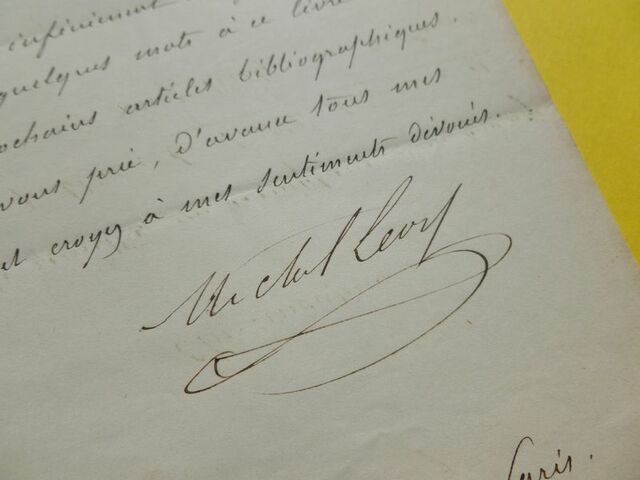 infiniment
quelques mots à ce livre
prochains articles bibliographiques.
vous prie, d'avance tous mes
et croyez à mes sentiments dévoués.
Michel Levy